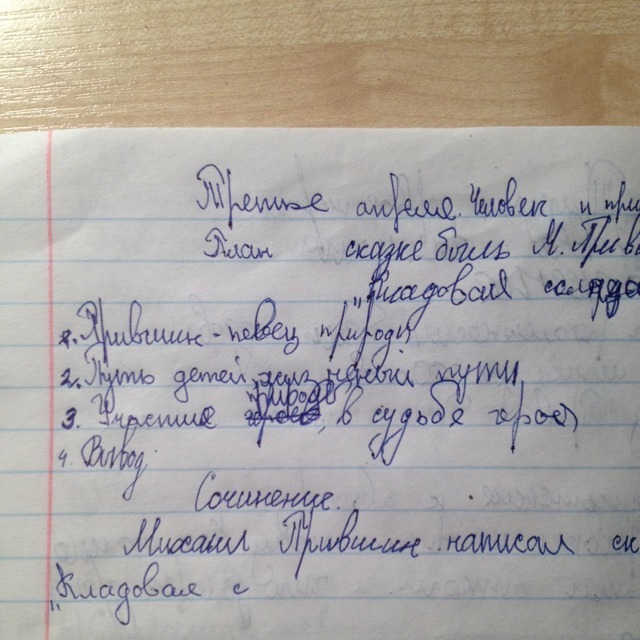 Третье апреля. Человек и при
План сказке быль М. Пришв
"Кладовая солнца
1. Пришвин - певец природы
2. Путь детей, жизненый пути
3. Участие природы, в судьбе героя
4. Вывод.
Сочинение.
Михаил Пришвин написал ск
"Кладовая с